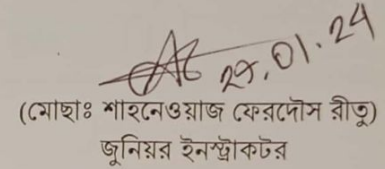 29.01.24
(মোছাঃ শাহনেওয়াজ ফেরদৌস রীতু)
জুনিয়র ইনস্ট্রাকটর